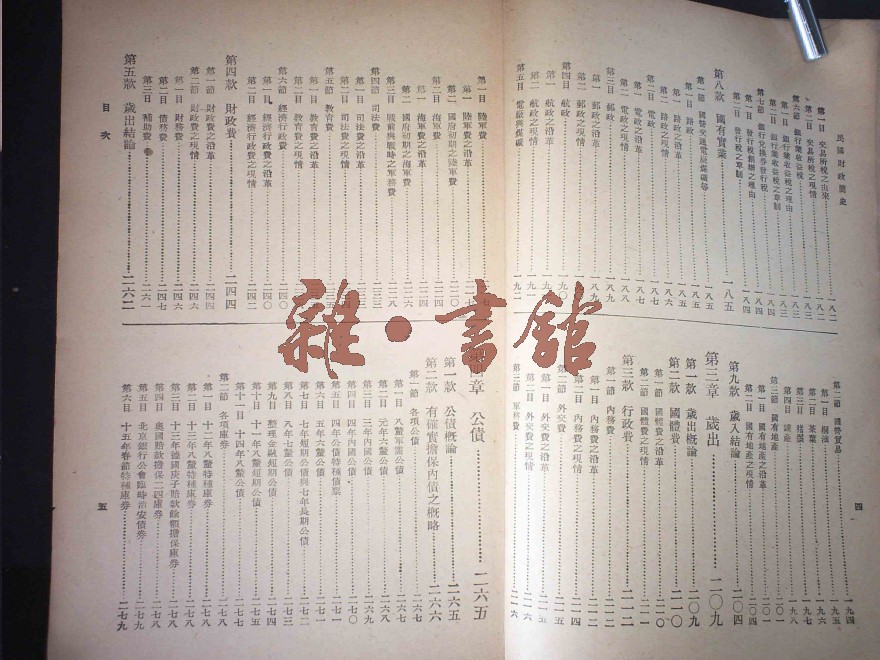 民國財政簡史
第一目 交易所稅之由來 一八二
第二目 交易所稅之現情 一八二
第六節 銀行業收益稅 一八三
第一目 銀行業收益稅之理由 一八三
第二目 銀行業收益稅之章制
第七節 銀行兌換券發行稅 一八四
第一目 發行稅創辦之理由 一八四
第二目 發行稅之章制 一八四
第八款 國有實業 一八五
第一節 國營交通電廠煤礦等 一八五
第一目 路政 一八五
第一 路政之沿革 一八五
第二 路政之現情 一八六
第二目 電政 一八七
第一 電政之沿革 一八七
第二 電政之現情 一八八
第三目 郵政 一八九
第一 郵政之沿革 一八九
第二 郵政之現情
第四目 航政 一九〇
第一 航政之沿革
第二 航政之現情 一九一
第五目 電廠與煤礦 一九二
第二節 國營貿易 一九四
第一目 桐油 一九四
第二目 茶葉 一九六
第三目 豬鬃 一九七
第四目 礦產 一九八
第三節 國有地產
第一目 國有地產之沿革
第二目 國有地產之現情
第九款 歲入結論 二〇四
第三章 歲出 二〇九
第一款 歲出概論 二〇九
第二款 國體費 二一〇
第一節 國體費之沿革 二一〇
第二節 國體費之現情 二一一
第三款 行政費 二一二
第一節 內務費 二一二
第一目 內務費之沿革 二一二
第二目 內務費之現情
第二節 外交費 二一五
第一目 外交費之沿革 二一五
第二目 外交費之現情
第三節 軍務費 二一六
四
第一目 陸軍費
第一 陸軍費之沿革
第二 國府初期之陸軍費 二二〇
第二目 海軍費
第一 海軍費之沿革 二二四
第二 國府初期之海軍費
第三目 戰前與戰時之軍務費 二二八
第四節 司法費
第一目 司法費之沿革
第二目 司法費之現情
第五節 教育費
第一目 教育費之沿革
第二目 教育費之現情
第六節 經濟行政費 二四〇
第一目 經濟行政費之沿革 二四〇
第二目 經濟行政費之現情 二四二
第四款 財政費 二四四
第一節 財政費之沿革 二四四
第二節 財政費之現情 二四六
第一目 財務費 二四六
第二目 債務費 二四七
第三目 補助費 二六一
第五款 歲出結論 二六二
目次
章 公債 二六五
第一款 公債概論 二六五
第二款 有確實擔保內債之概略 二六六
第一節 各項公債 二六七
第一目 八釐軍需公債 二六七
第二目 元年六釐公債 二六八
第三目 三年內國公債 二六九
第四目 四年內國公債 二七〇
第五目 四年公債特種債票 二七一
第六目 五年六釐公債 二七一
第七目 七年短期公債與七年長期公債 二七二
第八目 八年七釐公債 二七三
第九目 整理金融短期公債 二七四
第十目 十一年八釐短期公債 二七五
第十一目 十四年八釐公債 二七七
第二節 各項庫券 二七八
第一目 十一年八釐特種庫券 二七八
第二目 十三年八釐特種庫券 二七八
第三目 十三年德國庚子賠款餘額擔保庫券 二七八
第四目 奧國賠款擔保二四庫券 二七八
第五目 北京銀行公會臨時治安債券 二七九
第六目 十五年春節特種庫券 二七九
五
雜·書館